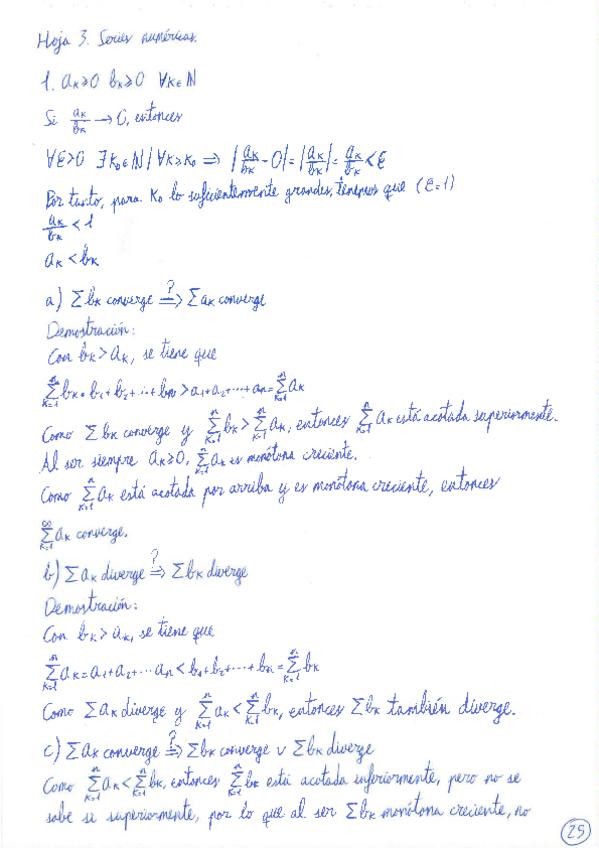 Hoja 3. Series numéricas.
1. aₖ≥0 bₖ≥0 ∀k∈ℕ
Si aₖ/bₖ → 0, entonces
∀ε>0 ∃k₀∈ℕ | ∀k≥k₀ ⟹ |aₖ/bₖ - 0| = |aₖ/bₖ| = aₖ/bₖ < ε
Por tanto, para k₀ lo suficientemente grandes, tenemos que (ε=1)
aₖ/bₖ < 1
aₖ < bₖ
a) Σbₖ converge ⟹? Σaₖ converge
Demostración:
Con bₖ > aₖ, se tiene que
Σₖ₌₁ⁿ bₖ = b₁+b₂+...+bₙ > a₁+a₂+...+aₙ = Σₖ₌₁ⁿ aₖ
Como Σbₖ converge y Σₖ₌₁ⁿ bₖ > Σₖ₌₁ⁿ aₖ, entonces Σₖ₌₁ⁿ aₖ está acotada superiormente.
Al ser siempre aₖ≥0, Σₖ₌₁ⁿ aₖ es monótona creciente.
Como Σₖ₌₁ⁿ aₖ está acotada por arriba y es monótona creciente, entonces
Σₖ₌₁^∞ aₖ converge.
b) Σaₖ diverge ⟹? Σbₖ diverge
Demostración:
Con bₖ > aₖ, se tiene que
Σₖ₌₁ⁿ aₖ = a₁+a₂+...aₙ < b₁+b₂+...+bₙ = Σₖ₌₁ⁿ bₖ
Como Σaₖ diverge y Σₖ₌₁ⁿ aₖ < Σₖ₌₁ⁿ bₖ, entonces Σbₖ también diverge.
c) Σaₖ converge ⟹? Σbₖ converge ∨ Σbₖ diverge
Como Σₖ₌₁ⁿ aₖ < Σₖ₌₁ⁿ bₖ, entonces Σₖ₌₁ⁿ bₖ está acotada inferiormente, pero no se
sabe si superiormente, por lo que al ser Σbₖ monótona creciente, no
25